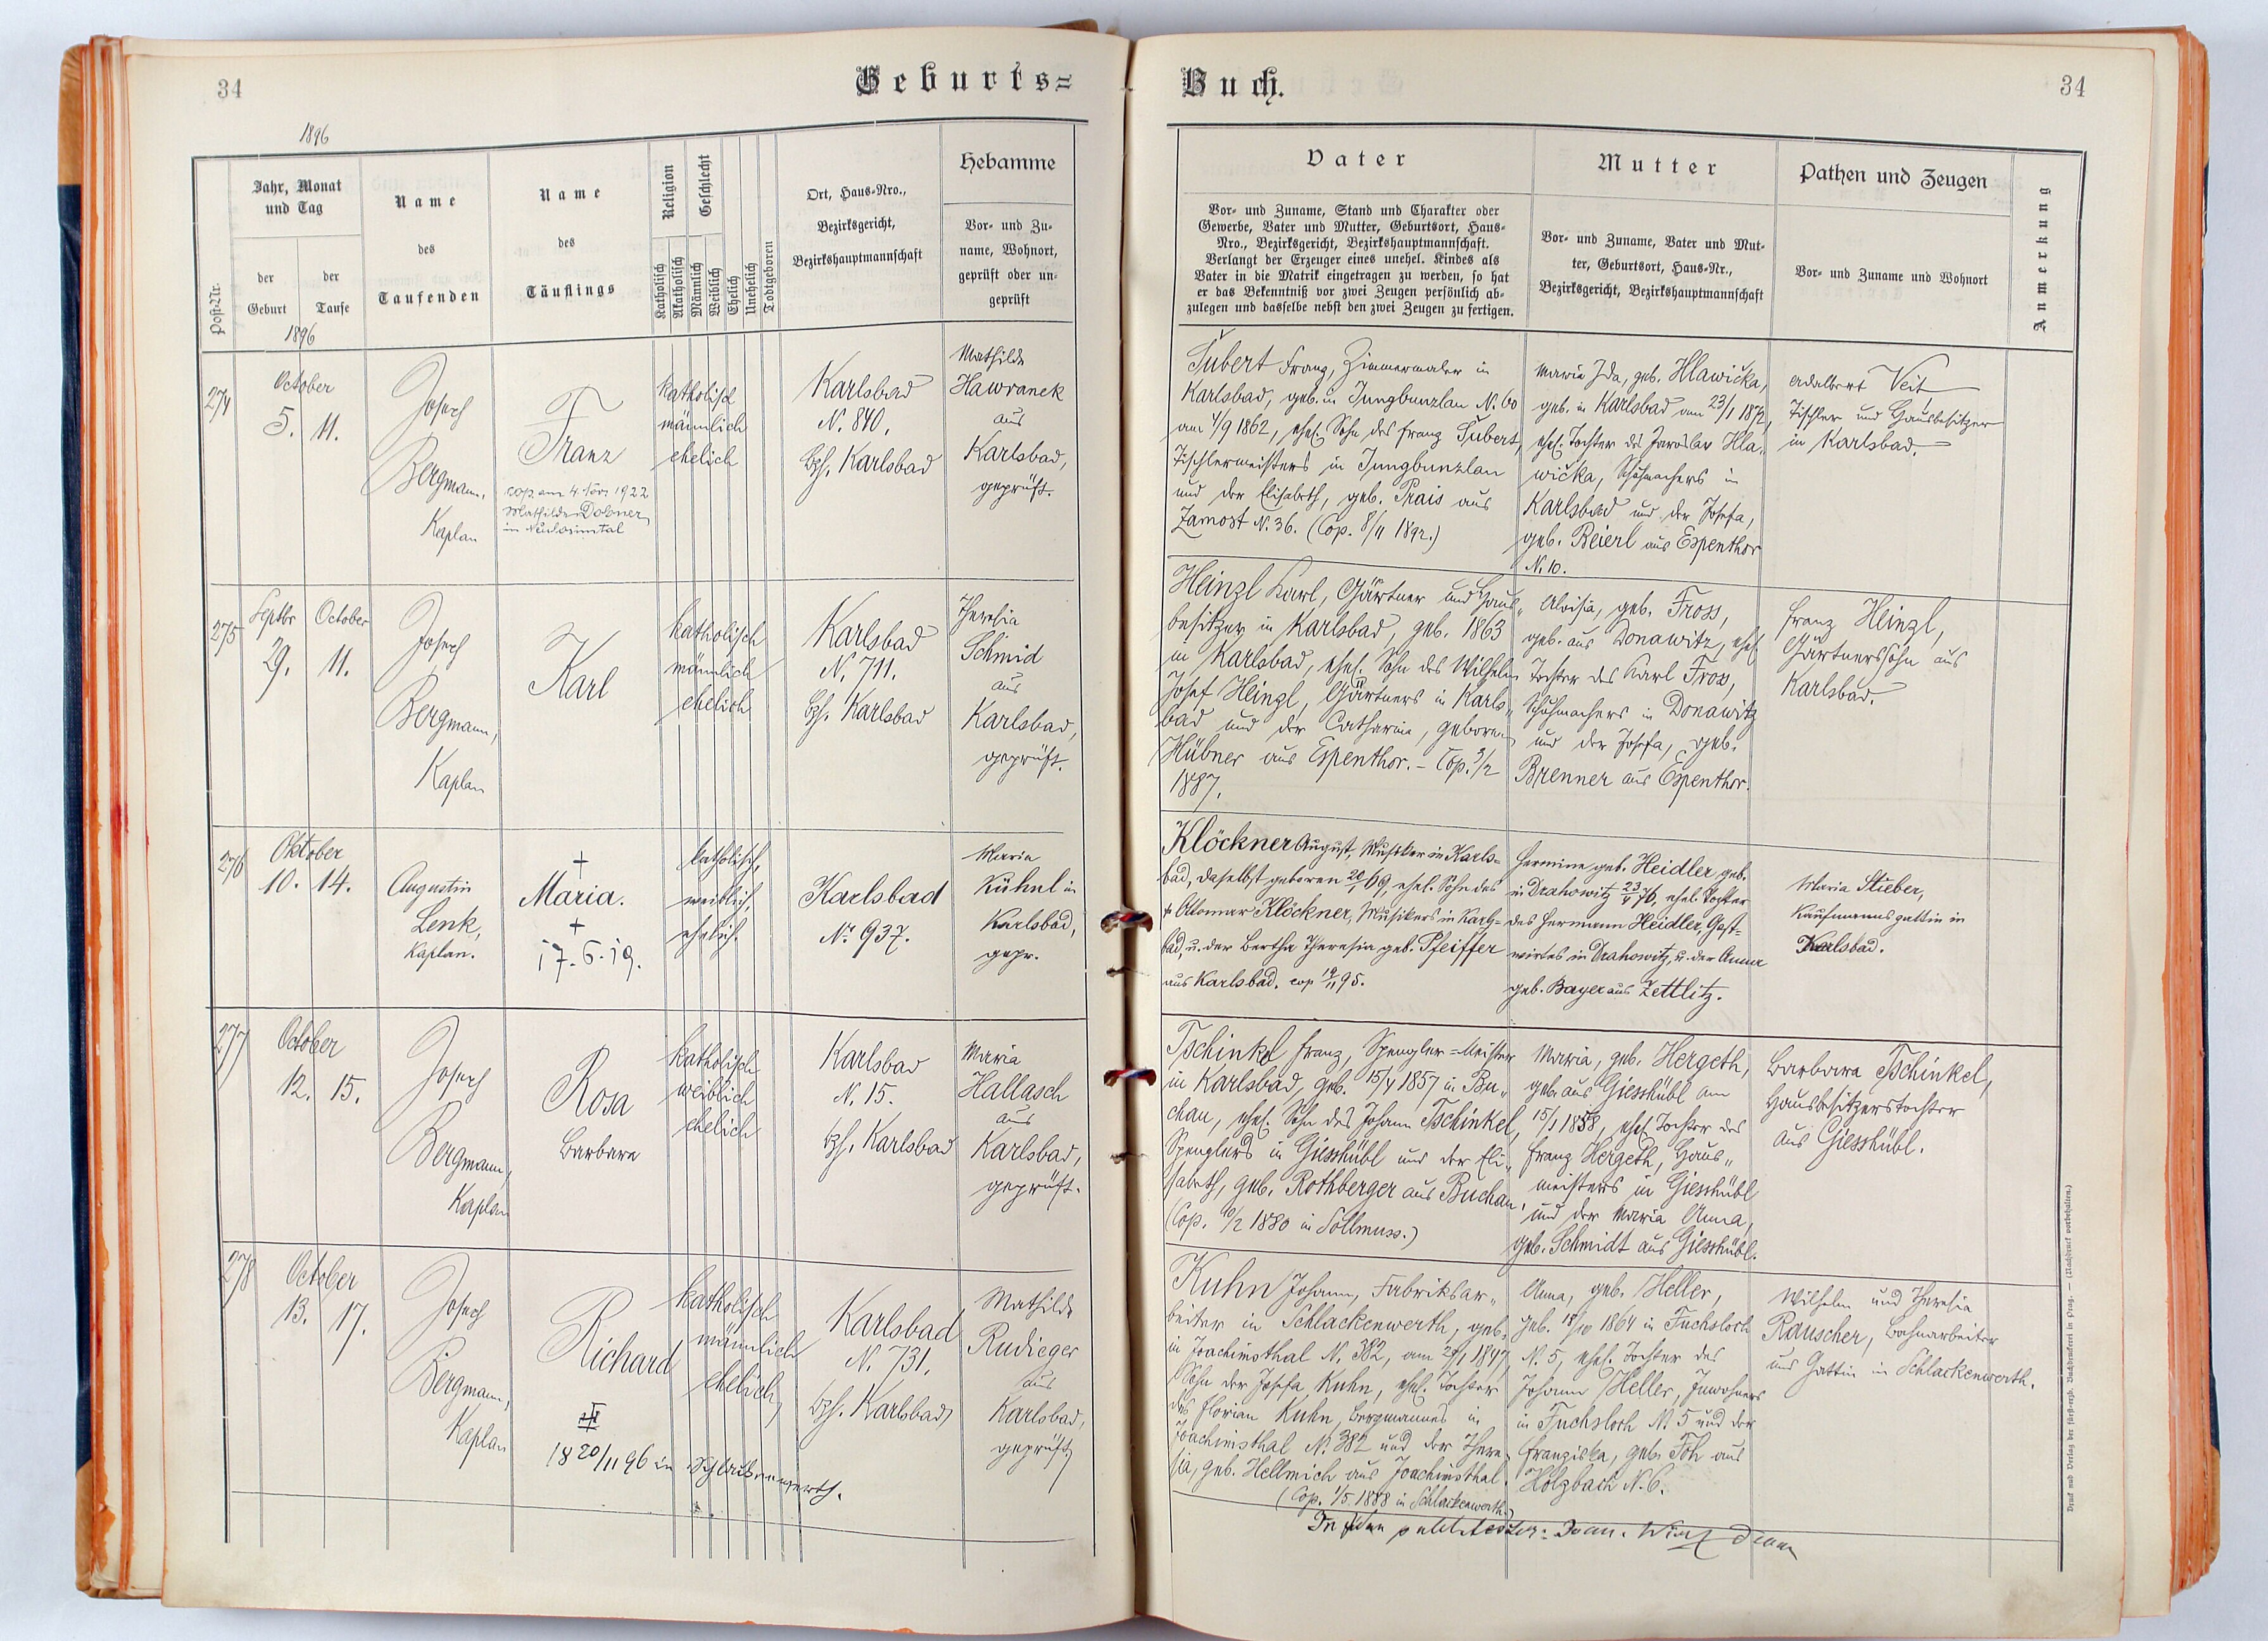 34
Geburts=
1896
Post-Nr.
Jahr, Monat
und Tag
der
Geburt
der
Taufe
1896
Name
des
Taufenden
Name
des
Täuflings
Religion
Geschlecht
Katholisch
Akatholisch
Männlich
Weiblich
Ehelich
Unehelich
Todtgeboren
Ort, Haus-Nro.,
Bezirksgericht,
Bezirkshauptmannschaft
Hebamme
Vor- und Zu-
name, Wohnort,
geprüft oder un-
geprüft
274
October
5. 11.
Josef
Bergmann,
Kaplan
Franz
cop. am 4. Nov 1922
Mathilde Dobner
in
katholisch
männlich
ehelich
Karlsbad
N. 840.
Bzh. Karlsbad
Mathilde
Hawranek
aus
Karlsbad,
geprüft.
275
Septbr October
29. 11.
Josef
Bergmann,
Kaplan
Karl
katholisch
männlich
ehelich
Karlsbad
N. 711.
Bzh. Karlsbad
Theresia
Schmid
aus
Karlsbad,
geprüft.
276
Oktober
10. 14.
Augustin
Lenk,
Kaplan.
+
Maria.
+
17.6.19.
katholisch,
weiblich.
ehelich.
Karlsbad
Nr. 937.
Maria
Kühnl in
Karlsbad,
gepr.
277
October
12. 15.
Josef
Bergmann,
Kaplan
Rosa
Barbara
katholisch
weiblich
ehelich
Karlsbad
N. 15.
bzh. Karlsbad
Maria
Hallasch
aus
Karlsbad,
geprüft.
278
October
13. 17.
Josef
Bergmann,
Kaplan
Richard
18 20/11 96 in Schlackenwerth.
katholisch
männlich
ehelich
Karlsbad
N. 731.
bzh. Karlsbad
Mathilde
Rudieger
aus
Karlsbad,
geprüft
Buch.
34
Vater
Vor- und Zuname, Stand und Charakter oder
Gewerbe, Vater und Mutter, Geburtsort, Haus-
Nro., Bezirksgericht, Bezirkshauptmannschaft.
Verlangt der Erzeuger eines unehel. Kindes als
Vater in die Matrik eingetragen zu werden, so hat
er das Bekenntniß vor zwei Zeugen persönlich ab-
zulegen und dasselbe nebst den zwei Zeugen zu fertigen.
Mutter
Vor- und Zuname, Vater und Mut-
ter, Geburtsort, Haus-Nr.,
Bezirksgericht, Bezirkshauptmannschaft
Pathen und Zeugen
Vor- und Zuname und Wohnort
Anmerkung
Šubert Franz, Zimmermaler in
Karlsbad, geb. in Jungbunzlau N. 60
am 4/9 1862, ehel. Sohn des Franz Šubert,
Tischlermeisters in Jungbunzlau
und der Elisabeth, geb. Prais aus
Zamost N. 36. (Cop. 8/11 1892.)
Marie Ida, geb. Hlawička,
geb. in Karlsbad am 23/1 1872,
ehel. Tochter des Jaroslav Hla-
wička, Schuhmachers in
Karlsbad und der Josefa,
geb. Beierl aus Espenthor
N. 10.
Adalbert Veit
Tischler und Hausbesitzer
in Karlsbad.
Heinzl Karl, Gärtner und Haus-
besitzer in Karlsbad, geb. 1863
in Karlsbad, ehel. Sohn des Wilhelm
Josef Heinzl, Gärtners in Karls-
bad und der Catharina, geboren
Hübner aus Espenthor. – Cop. 3/2
1887.
Aloisia, geb. Fross,
geb. aus Donawitz, ehel.
Tochter des Karl Fross,
Schuhmachers in Donawitz
und der Josefa, geb.
Brenner aus Espenthor.
Franz Heinzl,
Gärtnerssohn aus
Karlsbad.
Klöckner August, Musiker in Karls=
bad, daselbst geboren 20/1 69, ehel. Sohn des
+ Ottomar Klöckner, Musikers in Karls=
bad, u. der Bertha Theresia geb. Pfeiffer
aus Karlsbad. cop 19/11 95.
Hermine geb. Heidler, geb.
in Drahowitz 23/4 76, ehel. Tochter
des Hermann Heidler, Gast=
wirtes in Drahowitz, u. der Anna
geb. Bayer aus Zettlitz.
Maria Stieber,
Kaufmannsgattin in
Karlsbad.
Tschinkel Franz, Spengler=Meister
in Karlsbad, geb. 15/4 1857 in Bu-
chau, ehel. Sohn des Johann Tschinkel,
Spenglers in Giesshübl und der Eli-
sabeth, geb. Rothberger aus Buchau,
(Cop. 10/2 1880 in Sollmuss.)
Maria, geb. Hergeth,
geb. aus Giesshübl am
15/1 1858, ehel. Tochter des
Franz Hergeth, Haus-
meisters in Giesshübl
und der Maria Anna,
geb. Schmidt aus Giesshübl.
Barbara Tschinkel,
Hausbesitzerstochter
aus Giesshübl.
Kuhn Johann, Fabriksar-
beiter in Schlackenwerth, geb.
in Joachimsthal N. 382, am 27/1 1847,
Sohn der Josefa Kuhn, ehel. Tochter
des Florian Kuhn, Bergmannes in
Joachimsthal N. 382 und der There-
sia, geb. Hellmich aus Joachimsthal.
(Cop. 1/5. 1888 in Schlackenwerth.)
Anna, geb. Heller,
geb. 18/10 1864 in Fuchsloch
N. 5, ehel. Tochter des
Johann Heller, Inwohners
in Fuchsloch N. 5 und der
Franziska, geb. Toh aus
Holzbach N. 6.
Wilhelm und Theresia
Rauscher, Bahnarbeiter
und Gattin in Schlackenwerth.
Druck und Verlag der fürst-erzb. Buchdruckerei in Prag. — (Nachdruck vorbehalten.)